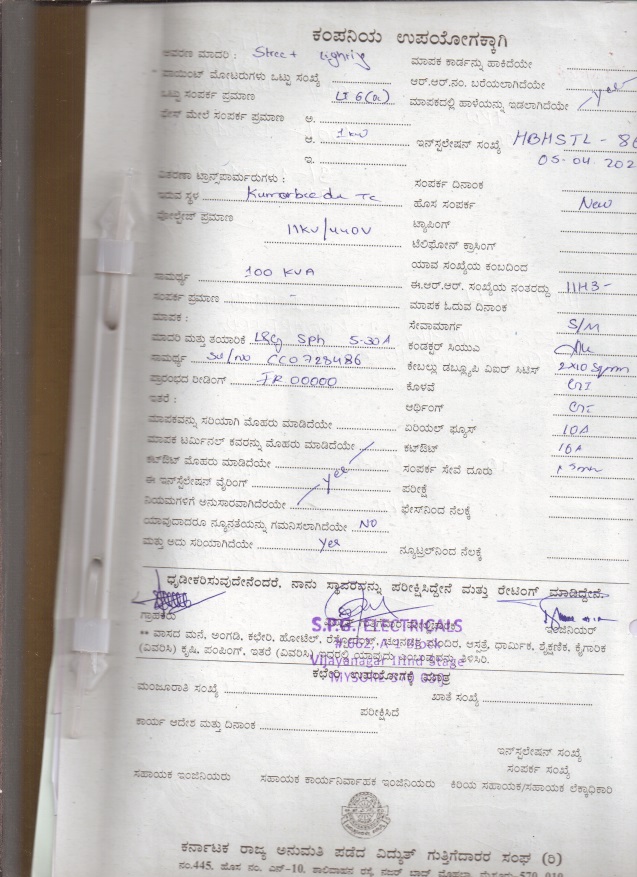 ಕಂಪನಿಯ ಉಪಯೋಗಕ್ಕಾಗಿ
ಆವರಣ ಮಾದರಿ : Street Lighting
ಮಾಪಕ ಕಾರ್ಡನ್ನು ಹಾಕಿದೆಯೇ
ಪಾಯಿಂಟ್ ಮೋಟರುಗಳು ಒಟ್ಟು ಸಂಖ್ಯೆ
ಆರ್.ಆರ್.ನಂ. ಬರೆಯಲಾಗಿದೆಯೇ
ಒಟ್ಟು ಸಂಪರ್ಕ ಪ್ರಮಾಣ LT 6(a)
ಮಾಪಕದಲ್ಲಿ ಹಾಳೆಯನ್ನು ಇಡಲಾಗಿದೆಯೇ yes
ಫೇಸ್ ಮೇಲೆ ಸಂಪರ್ಕ ಪ್ರಮಾಣ ಅ.
ಆ. 1kw
ಇನ್‌ಸ್ಟಲೇಷನ್ ಸಂಖ್ಯೆ HBHSTL - 86
05-04-202
ಇ.
ವಿತರಣಾ ಟ್ರಾನ್ಸ್‌ಫಾರ್ಮರುಗಳು :
ಸಂಪರ್ಕ ದಿನಾಂಕ
ಇರುವ ಸ್ಥಳ Kumarbeedu Tc
ಹೊಸ ಸಂಪರ್ಕ New
ವೋಲ್ಟೇಜ್ ಪ್ರಮಾಣ 11KV/440V
ಟ್ಯಾಪಿಂಗ್
ಟೆಲಿಫೋನ್ ಕ್ರಾಸಿಂಗ್
ಯಾವ ಸಂಖ್ಯೆಯ ಕಂಬದಿಂದ
ಸಾಮರ್ಥ್ಯ 100 KVA
ಈ.ಆರ್.ಆರ್. ಸಂಖ್ಯೆಯ ನಂತರದ್ದು 11HB-
ಸಂಪರ್ಕ ಪ್ರಮಾಣ -
ಮಾಪಕ ಓದುವ ದಿನಾಂಕ
ಮಾಪಕ :
ಸೇವಾಮಾರ್ಗ S/M
ಮಾದರಿ ಮತ್ತು ತಯಾರಿಕೆ L&G SPh 5-30A
ಕಂಡಕ್ಟರ್ ಸಿಯುಎ
ಸಾಮರ್ಥ್ಯ Sl/no CC0728486
ಕೇಬಲ್ಲು ಡಬ್ಲ್ಯೂಪಿ ಎಐರ್ ಸಿಟಿಸ್ 2x10 Sqmm
ಪ್ರಾರಂಭದ ರೀಡಿಂಗ್ IR 00000
ಕೊಳವೆ GI
ಇತರೆ :
ಆರ್ಥಿಂಗ್ GI
ಮಾಪಕವನ್ನು ಸರಿಯಾಗಿ ಮೊಹರು ಮಾಡಿದೆಯೇ
ಏರಿಯಲ್ ಫ್ಯೂಸ್ 10A
ಮಾಪಕ ಟರ್ಮಿನಲ್ ಕವರನ್ನು ಮೊಹರು ಮಾಡಿದೆಯೇ
ಕಟ್‌ಔಟ್ 16A
ಕಟ್‌ಔಟ್ ಮೊಹರು ಮಾಡಿದೆಯೇ yes
ಸಂಪರ್ಕ ಸೇವೆ ದೂರು
ಈ ಇನ್‌ಸ್ಟಲೇಷನ್ ವೈರಿಂಗ್
ಪರೀಕ್ಷೆ
ನಿಯಮಗಳಿಗೆ ಅನುಸಾರವಾಗಿದೆಯೇ
ಫೇಸ್‌ನಿಂದ ನೆಲಕ್ಕೆ
ಯಾವುದಾದರೂ ನ್ಯೂನತೆಯನ್ನು ಗಮನಿಸಲಾಗಿದೆಯೇ NO
ಮತ್ತು ಅದು ಸರಿಯಾಗಿದೆಯೇ Yes
ನ್ಯೂಟ್ರಲ್‌ನಿಂದ ನೆಲಕ್ಕೆ
ಧೃಡೀಕರಿಸುವುದೇನೆಂದರೆ, ನಾನು ಸ್ಥಾವರವನ್ನು ಪರೀಕ್ಷಿಸಿದ್ದೇನೆ ಮತ್ತು ರೇಟಿಂಗ್ ಮಾಡಿದ್ದೇನೆ.
ಗ್ರಾಹಕರು
ಇಂಜಿನಿಯರ್
S.P.G. ELECTRICALS
#.662, A-1 Block
Vijayanagar IIInd Stage
MYSORE
** ವಾಸದ ಮನೆ, ಅಂಗಡಿ, ಕಛೇರಿ, ಹೋಟೆಲ್, ಆಸ್ಪತ್ರೆ, ಧಾರ್ಮಿಕ, ಶೈಕ್ಷಣಿಕ, ಕೈಗಾರಿಕ
(ವಿವರಿಸಿ) ಕೃಷಿ, ಪಂಪಿಂಗ್, ಇತರೆ (ವಿವರಿಸಿ) ತಿಳಿಸಿರಿ.
ಕಛೇರಿ ಉಪಯೋಗಕ್ಕೆ ಮಾತ್ರ
ಮಂಜೂರಾತಿ ಸಂಖ್ಯೆ
ಖಾತೆ ಸಂಖ್ಯೆ
ಪರೀಕ್ಷಿಸಿದೆ
ಕಾರ್ಯ ಆದೇಶ ಮತ್ತು ದಿನಾಂಕ
ಇನ್‌ಸ್ಟಲೇಷನ್ ಸಂಖ್ಯೆ
ಸಂಪರ್ಕ ಸಂಖ್ಯೆ
ಸಹಾಯಕ ಇಂಜಿನಿಯರು ಸಹಾಯಕ ಕಾರ್ಯನಿರ್ವಾಹಕ ಇಂಜಿನಿಯರು ಕಿರಿಯ ಸಹಾಯಕ/ಸಹಾಯಕ ಲೆಕ್ಕಾಧಿಕಾರಿ
ಕರ್ನಾಟಕ ರಾಜ್ಯ ಅನುಮತಿ ಪಡೆದ ವಿದ್ಯುತ್ ಗುತ್ತಿಗೆದಾರರ ಸಂಘ (ರಿ)
ನಂ.445, ಹೊಸ ನಂ. ಎನ್-10,